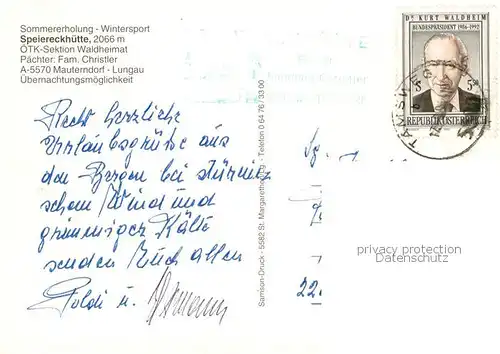 Sommererholung - Wintersport
Speiereckhütte, 2066 m
ÖTK-Sektion Waldheimat
Pächter: Fam. Christler
A-5570 Mauterndorf - Lungau
Übernachtungsmöglichkeit
Recht herzliche
Urlaubsgrüße aus
den Bergen bei stürmi-
schem Wind und
grimmiger Kälte
senden Euch allen
Poldi u. Hermann
Samson-Druck - 5582 St. Margarethen/Lg. - Telefon 0 64 76 / 33 00
DR. KURT WALDHEIM
BUNDESPRÄSIDENT 1986-1992
REPUBLIK ÖSTERREICH
TAMSWEG
22.
privacy protection
Datenschutz